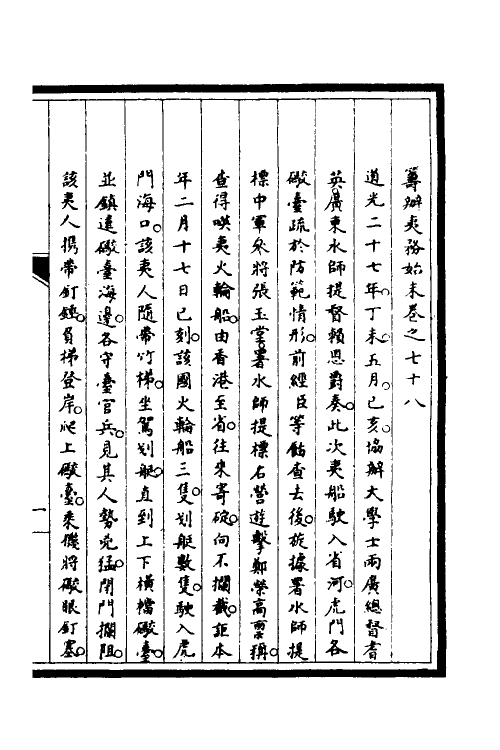 籌辦夷務始末卷之七十八
道光二十七年。丁未。五月。己亥。協辦大學士兩廣總督耆
英。廣東水師提督賴恩爵奏。此次夷船駛入省河。虎門各
礮臺疏於防範情形。前經臣等飭查去後。旋據署水師提
標中軍參將張玉堂。署水師提標右營遊擊鄭榮高稟稱。
查得暎夷火輪船。由香港至省。往來寄碇。向不攔截。詎本
年二月十七日巳刻。該國火輪船三隻。划艇數隻。駛入虎
門海口。該夷人隨帶竹梯。坐駕划艇。直到上下橫檔礮臺。
並鎮遠礮臺海邊。各守臺官兵。見其人勢兇猛。閉門攔阻。
該夷人攜帶釘鐵。負梯登岸。爬上礮臺。乘機將礮眼釘塞。
一